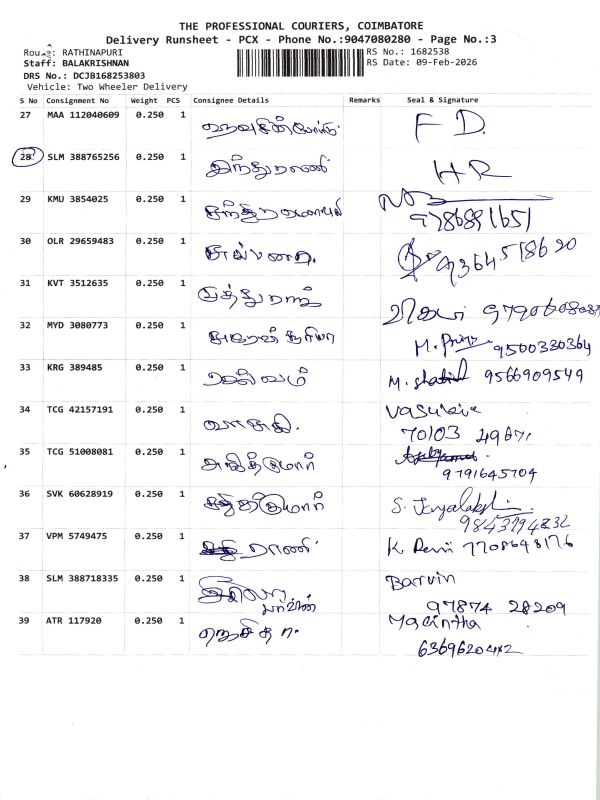 THE PROFESSIONAL COURIERS, COIMBATORE
Delivery Runsheet - PCX - Phone No.:9047080280 - Page No.:3
Route: RATHINAPURI RS No.: 1682538
Staff: BALAKRISHNAN RS Date: 09-Feb-2026
DRS No.: DCJB168253803
Vehicle: Two Wheeler Delivery
S No Consignment No Weight PCS Consignee Details Remarks Seal & Signature
27 MAA 112040609 0.250 1 F D.
28 SLM 388765256 0.250 1 இந்துராணி HR
29 KMU 3854025 0.250 1
9786891651
30 OLR 29659483 0.250 1 9364518690
31 KVT 3512635 0.250 1 முத்துராஜ்
32 MYD 3080773 0.250 1 அருண் சூர்யா M. Priya 9500330364
33 KRG 389485 0.250 1 செல்வம் M. 9566909549
34 TCG 42157191 0.250 1 வாசுகி.
70103 49671
35 TCG 51008081 0.250 1 அஜித்குமார்
9791645704
36 SVK 60628919 0.250 1 சத்தீகுமார் S. Jayalakshmi
9843794832
37 VPM 5749475 0.250 1 ராணி K. Devi 7708648176
38 SLM 388718335 0.250 1 Barvin
பர்வீன் 97874 28209
39 ATR 117920 0.250 1